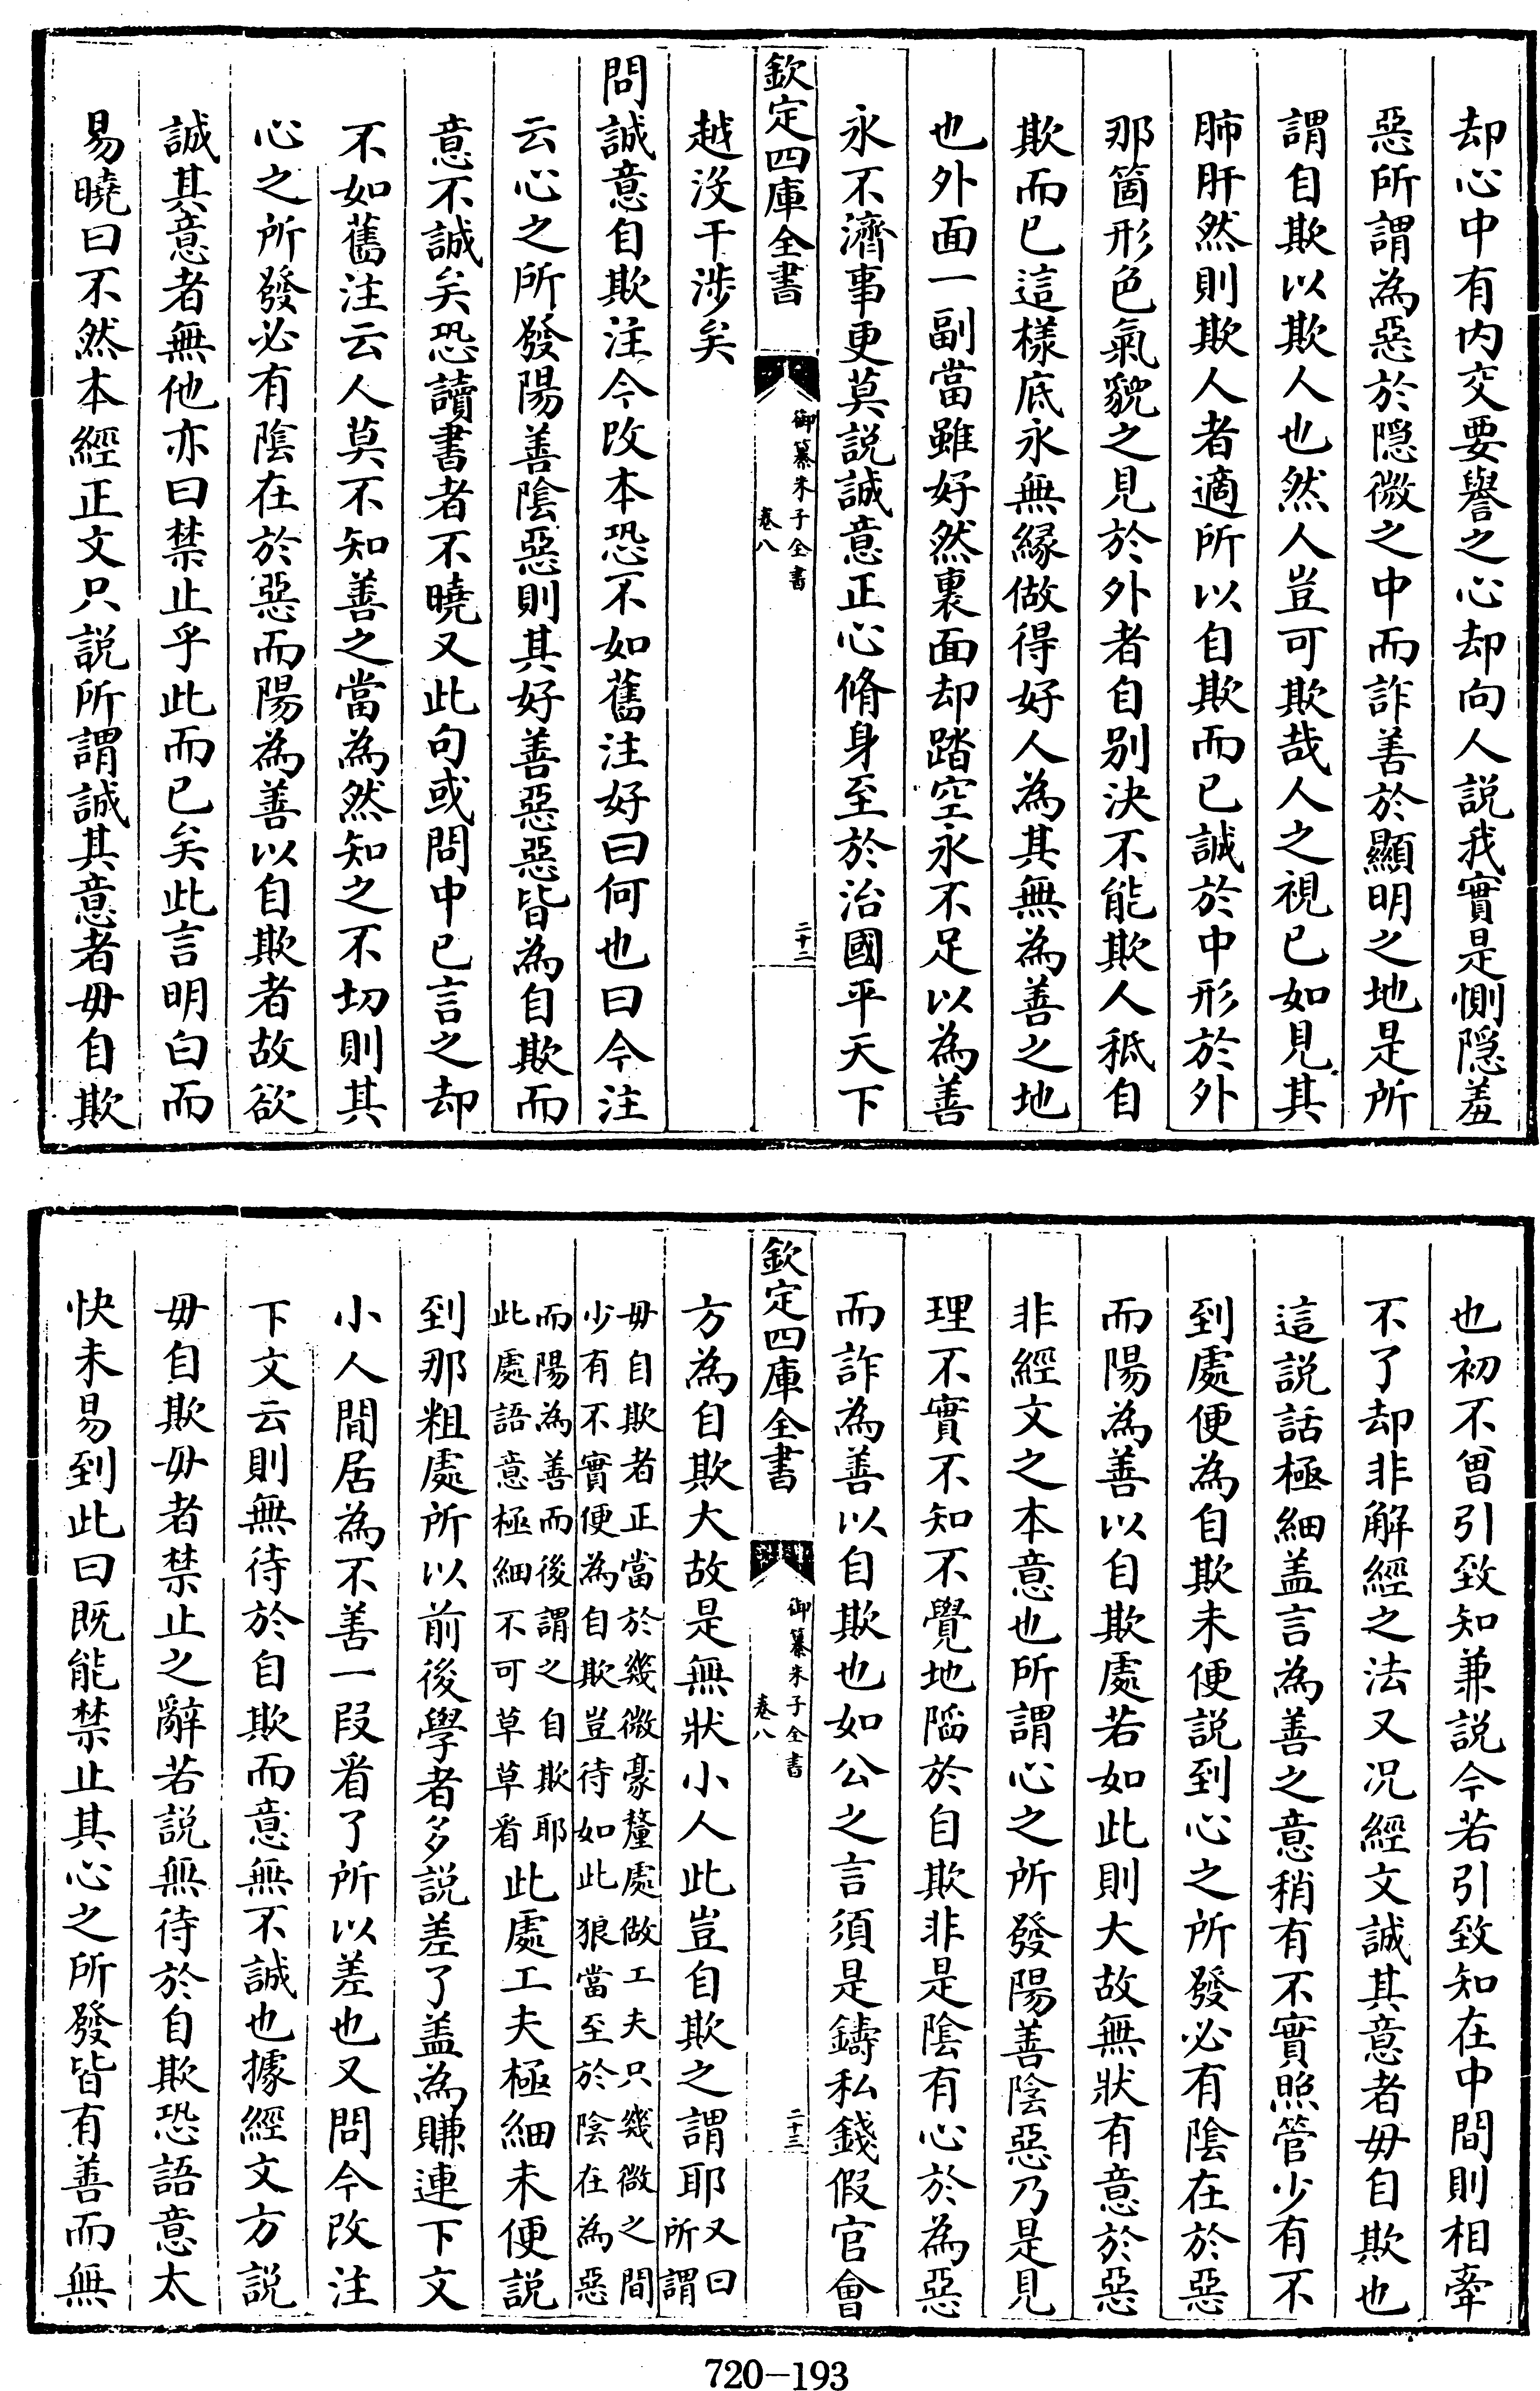 却心中有内交要譽之心却向人説我實是惻隠羞
惡所謂為惡於隠微之中而詐善於顯明之地是所
謂自欺以欺人也然人豈可欺哉人之視已如見其
肺肝然則欺人者適所以自欺而已誠於中形於外
那箇形色氣貌之見於外者自别決不能欺人秪自
欺而已這様底永無縁做得好人為其無為善之地
也外面一副當雖好然裏面却踏空永不足以為善
永不濟事更莫説誠意正心脩身至於治國平天下
欽定四庫全書
御纂朱子全書
卷八
二十二
越没干涉矣
問誠意自欺注今改本恐不如舊注好曰何也曰今注
云心之所發陽善陰惡則其好善惡惡皆為自欺而
意不誠矣恐讀書者不曉又此句或問中已言之却
不如舊注云人莫不知善之當為然知之不切則其
心之所發必有陰在於惡而陽為善以自欺者故欲
誠其意者無他亦曰禁止乎此而已矣此言明白而
易曉曰不然本經正文只説所謂誠其意者毋自欺
也初不曾引致知兼説今若引致知在中間則相牽
不了却非解經之法又况經文誠其意者毋自欺也
這説話極細盖言為善之意稍有不實照管少有不
到處便為自欺未便説到心之所發必有陰在於惡
而陽為善以自欺處若如此則大故無狀有意於惡
非經文之本意也所謂心之所發陽善陰惡乃是見
理不實不知不覺地陷於自欺非是陰有心於為惡
而詐為善以自欺也如公之言須是鑄私錢假官會
欽定四庫全書
御纂朱子全書
卷八
二十三
方為自欺大故是無狀小人此豈自欺之謂耶又曰所謂
毋自欺者正當於幾微豪釐處做工夫只幾微之間
少有不實便為自欺豈待如此狼當至於陰在為惡
而陽為善而後謂之自欺耶
此處語意極細不可草草看
此處工夫極細未便説
到那粗處所以前後學者多説差了盖為賺連下文
小人閒居為不善一段看了所以差也又問今改注
下文云則無待於自欺而意無不誠也據經文方説
毋自欺毋者禁止之辭若説無待於自欺恐語意太
快未易到此曰既能禁止其心之所發皆有善而無
720-193